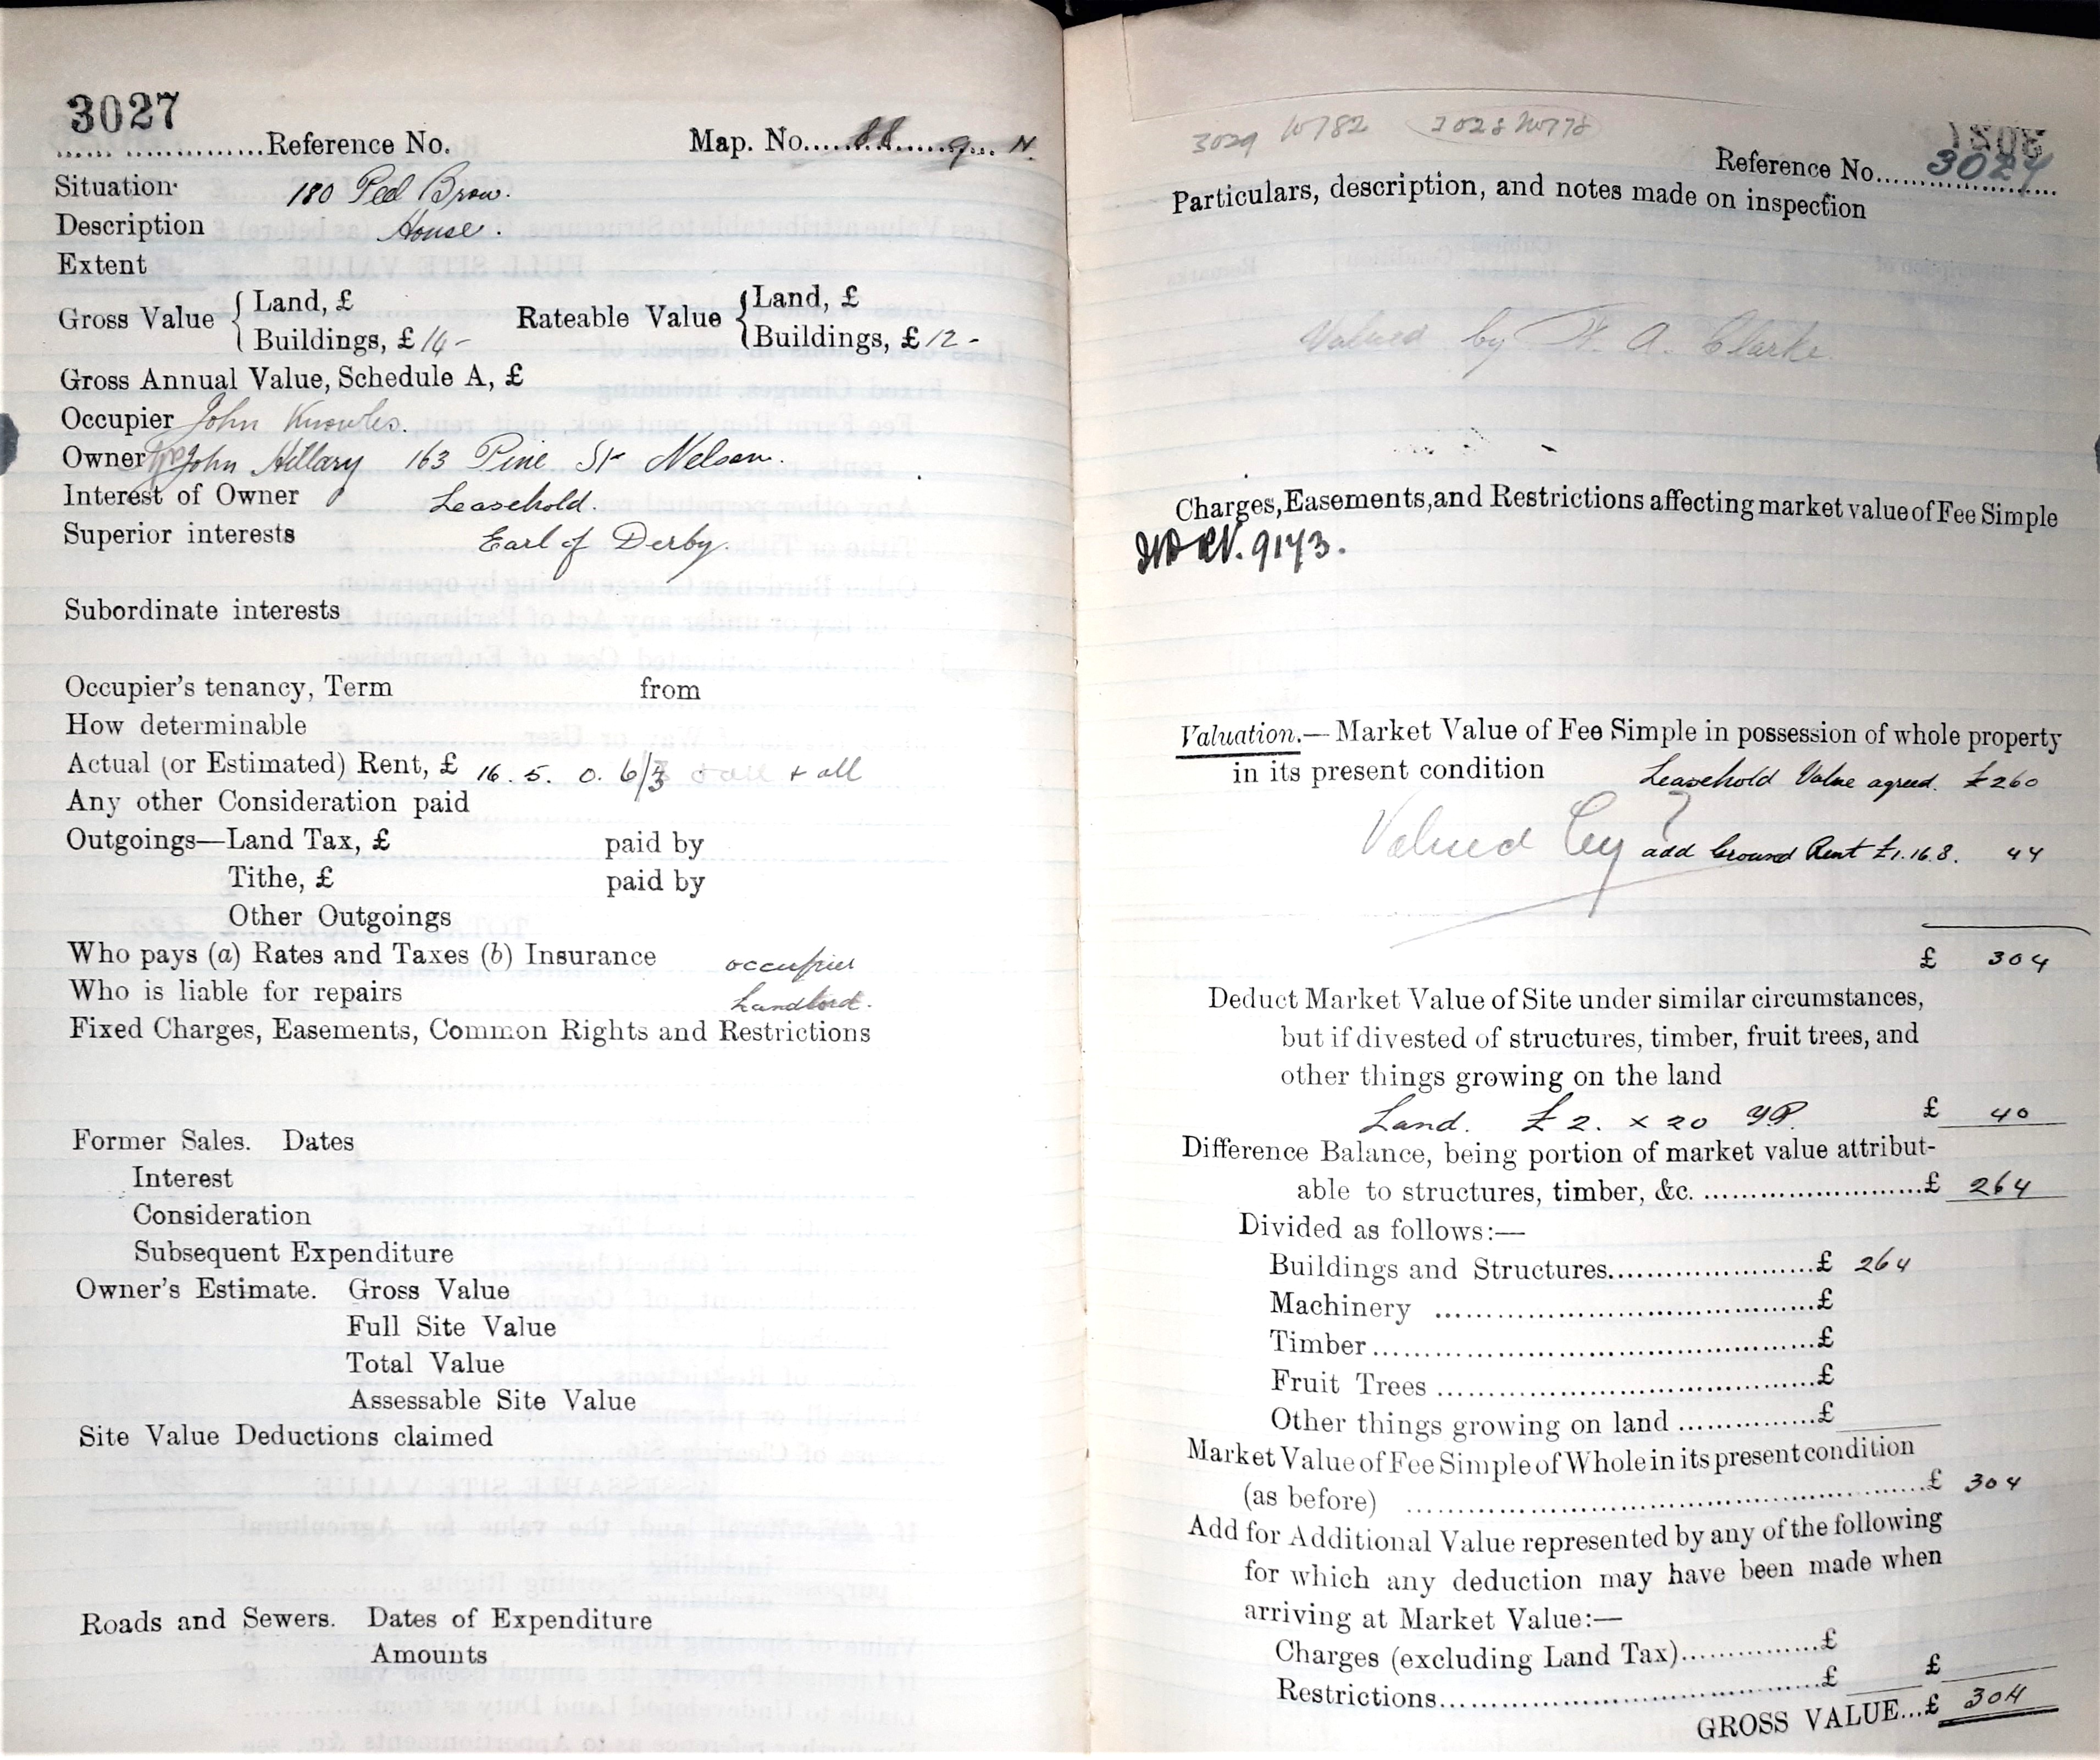 3027
Reference No. Map. No. 88 9 N
Situation 180 Ped Brow.
Description House.
Extent
Gross Value { Land, £ Rateable Value { Land, £
Buildings, £ 14 - Buildings, £ 12 -
Gross Annual Value, Schedule A, £
Occupier John Knowles.
Owner John Hillary 163 Pine St Nelson.
Interest of Owner Leasehold.
Superior interests Earl of Derby.
Subordinate interests
Occupier's tenancy, Term from
How determinable
Actual (or Estimated) Rent, £ 16. 5. 0. 6/3 + all
Any other Consideration paid
Outgoings—Land Tax, £ paid by
Tithe, £ paid by
Other Outgoings
Who pays (a) Rates and Taxes (b) Insurance occupier
Who is liable for repairs Landlord.
Fixed Charges, Easements, Common Rights and Restrictions
Former Sales. Dates
Interest
Consideration
Subsequent Expenditure
Owner's Estimate. Gross Value
Full Site Value
Total Value
Assessable Site Value
Site Value Deductions claimed
Roads and Sewers. Dates of Expenditure
Amounts
3029 10782 3028 10778
Reference No. 3027
Particulars, description, and notes made on inspection
Valued by F. A. Clarke.
Charges, Easements, and Restrictions affecting market value of Fee Simple
9173.
Valuation.— Market Value of Fee Simple in possession of whole property
in its present condition Leasehold Value agreed. £260
Valued by ?
add Ground Rent £1.16.8. 44
£ 304
Deduct Market Value of Site under similar circumstances,
but if divested of structures, timber, fruit trees, and
other things growing on the land
Land. £2. x 20 YP. £ 40
Difference Balance, being portion of market value attribut-
able to structures, timber, &c. £ 264
Divided as follows:—
Buildings and Structures £ 264
Machinery £
Timber £
Fruit Trees £
Other things growing on land £
Market Value of Fee Simple of Whole in its present condition
(as before) £ 304
Add for Additional Value represented by any of the following
for which any deduction may have been made when
arriving at Market Value:—
Charges (excluding Land Tax) £
Restrictions £ £
GROSS VALUE...£ 304